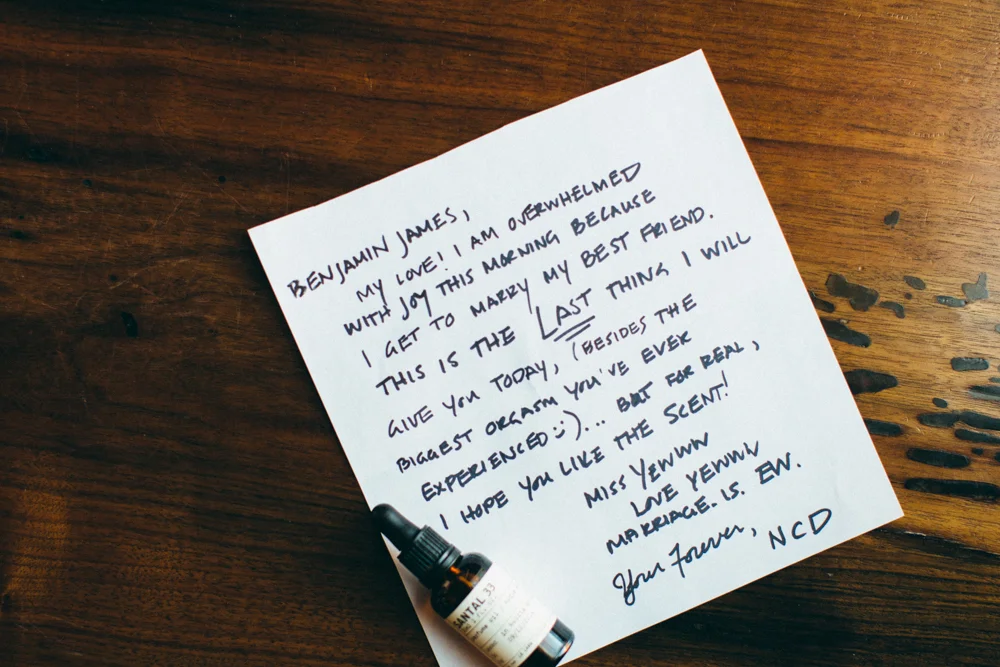 BENJAMIN JAMES,
MY LOVE! I AM OVERWHELMED
WITH JOY THIS MORNING BECAUSE
I GET TO MARRY MY BEST FRIEND.
THIS IS THE LAST THING I WILL
GIVE YOU TODAY, (BESIDES THE
BIGGEST ORGASM YOU'VE EVER
EXPERIENCED :))... BUT FOR REAL,
I HOPE YOU LIKE THE SCENT!
MISS YEWWW
LOVE YEWWW
MARRIAGE. IS. EW.
Your Forever, NCD
SANTAL 33